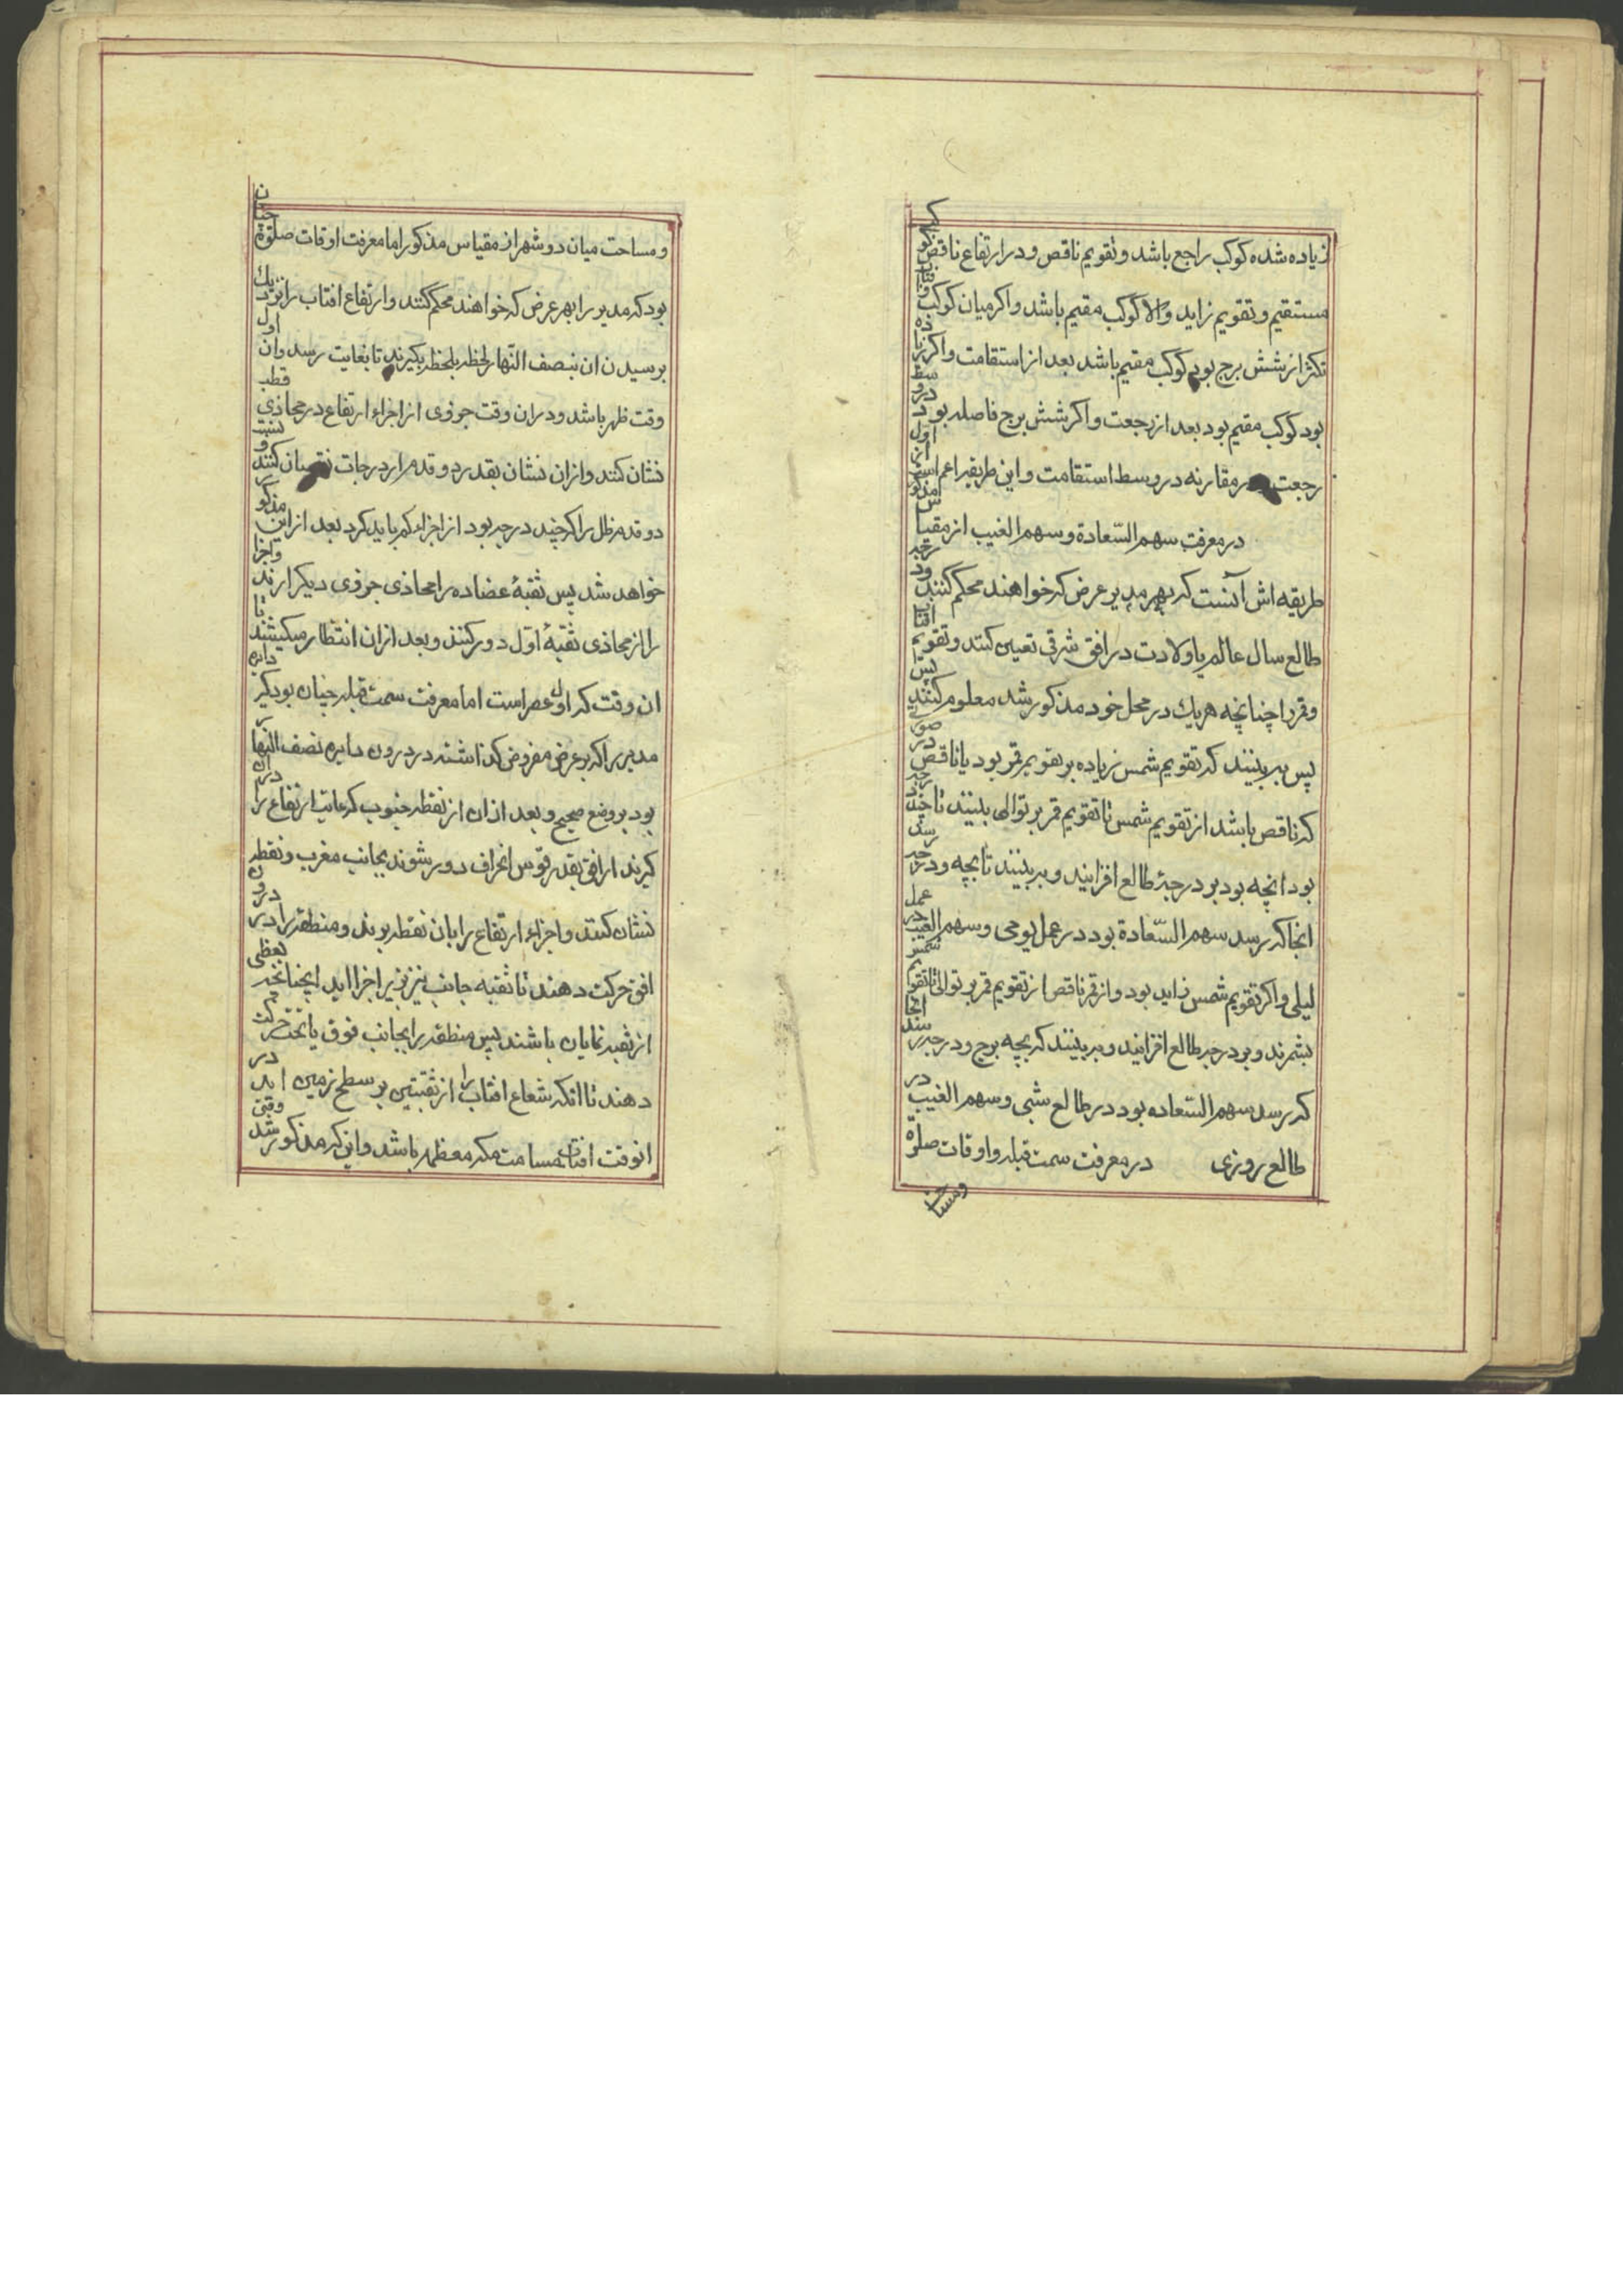 زیاده شده کوکب راجع باشد و تقویم ناقص و در ارتفاع ناقص کوکب
مستقیم و تقویم زاید والا کوکب مقیم باشد و اکر میان کوکب و افتاب
تکثر از شش برج بود کوکب مقیم باشد بعد از استقامت و اکر زیاده
بود کوکب مقیم بود بعد از رجعت و اکر شش برج فاصله بود در وسط
رجعت و در مقارنه در وسط استقامت و این طریقه اعم است از اول
در معرفت سهم السّعادة و سهم الغیب از مقیاس مذکور
طریقه اش آنست که بهر مدیر عرض که خواهند محکم کنند و درجه
طالع سال عالم یا ولادت در افق شرقی تعیین کنند و تقویم افتاب
و قمر را چنانچه هریك در محل خود مذکور شد معلوم کنند پس
پس ببینند که تقویم شمس زیاده بر تقویم قمر بود یا ناقص در صورتی
که ناقص باشد از تقویم شمس تا تقویم قمر بر توالی ببینند تا چند درجه
بود انچه بود بر درجهٔ طالع افزایند و ببینند تا بچه و درجه رسد
انجا که رسد سهم السّعادة بود در عمل یومی و سهم الغیب در عمل
لیلی و اکر تقویم شمس زاید بود و از قمر ناقص از تقویم قمر بر توالی تا تقویم شمس
بشمرند و بر درجه طالع افزایند و ببینند که بچه برج و درجه رسد انجا
که رسد سهم السّعاده بود در طالع شبی و سهم الغیب در
طالع روزی در معرفت سمت قبله و اوقات صلوة
ومساحت
و مساحت میان دو شهر از مقیاس مذکور اما معرفت اوقات صلوة چنان
بود که مدیر را بهر عرض که خواهند محکم کنند و ارتفاع افتاب را نزدیك
برسیدن ان بنصف النّهار لحظه بلحظه بکیرند تا بغایت رسد و ان اول
وقت ظهر باشد و در ان وقت جزوی از اجزاء ارتفاع در محاذی قطب
نشان کنند و از ان نشان بقدر دو قدم از درجات نقصان کنند و نسبت
دو قدم ظل را که چند درجه بود از اجزاء کم باید کرد بعد از این مذکور
خواهد شد پس ثقبهٔ عضاده را محاذی جزوی دیکر ارند و اجزا
را از محاذی ثقبهٔ اوّل دور کنند و بعد از ان انتظار میکشند تا
ان وقت که اول عصر است اما معرفت سمت قبله چنان بود که دایره
مدیر را که بر عرض مفروض کذاشتند در درون دایره نصف النهار
بود بر وضع صحیح و بعد از ان از نقطه جنوب که غایت ارتفاع را در ان
کیرند از افق بقدر قوس انحراف دور شوند بجانب مغرب و نقطه
نشان کنند و اجزاء ارتفاع را بان نقطه برند و منطقه را در درون
افق حرکت دهند تا ثقبه جانب نیز بزیر اجزا اید اینچنانچه بعظی
از ثقبه نمایان باشند پس منطقه را بجانب فوق یا تحت حرکت
دهند تا انکه شعاع افتاب را از ثقبتین بر سطح زمین اید در
انوقت افتاب مسامت مکه معظمه باشد و این که مذکور شد وقتی